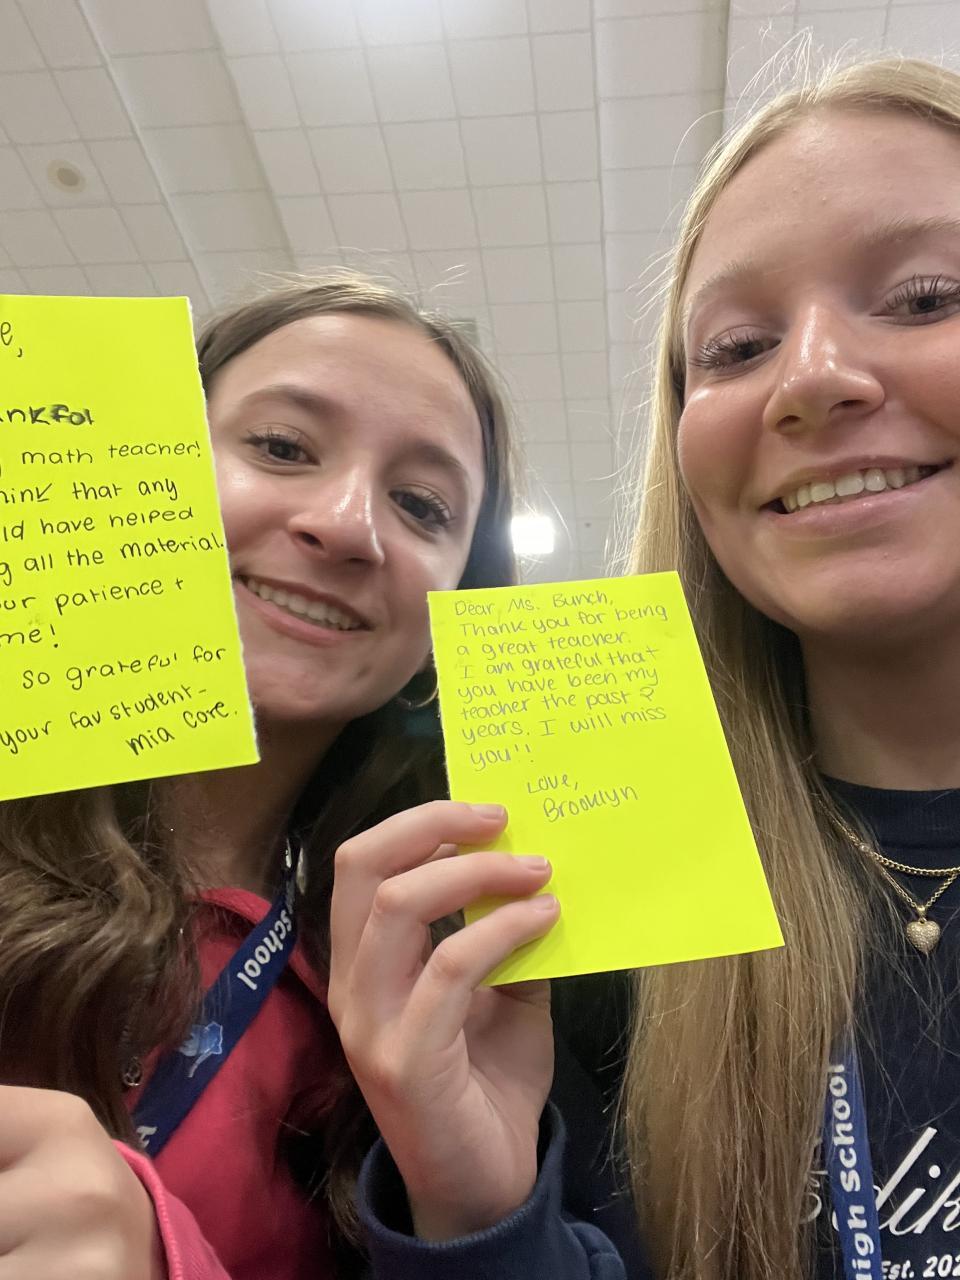 e,
nkful
math teacher!
hink that any
ld have helped
g all the material.
ur patience +
me!
so grateful for
your fav student-
mia Core.
Dear Ms. Bunch,
Thank you for being
a great teacher.
I am grateful that
you have been my
teacher the past 2
years. I will miss
you!!
Love,
Brooklyn
School
High School
dik
Est. 202